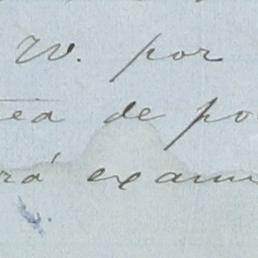 W. por
ea de po
rá exam